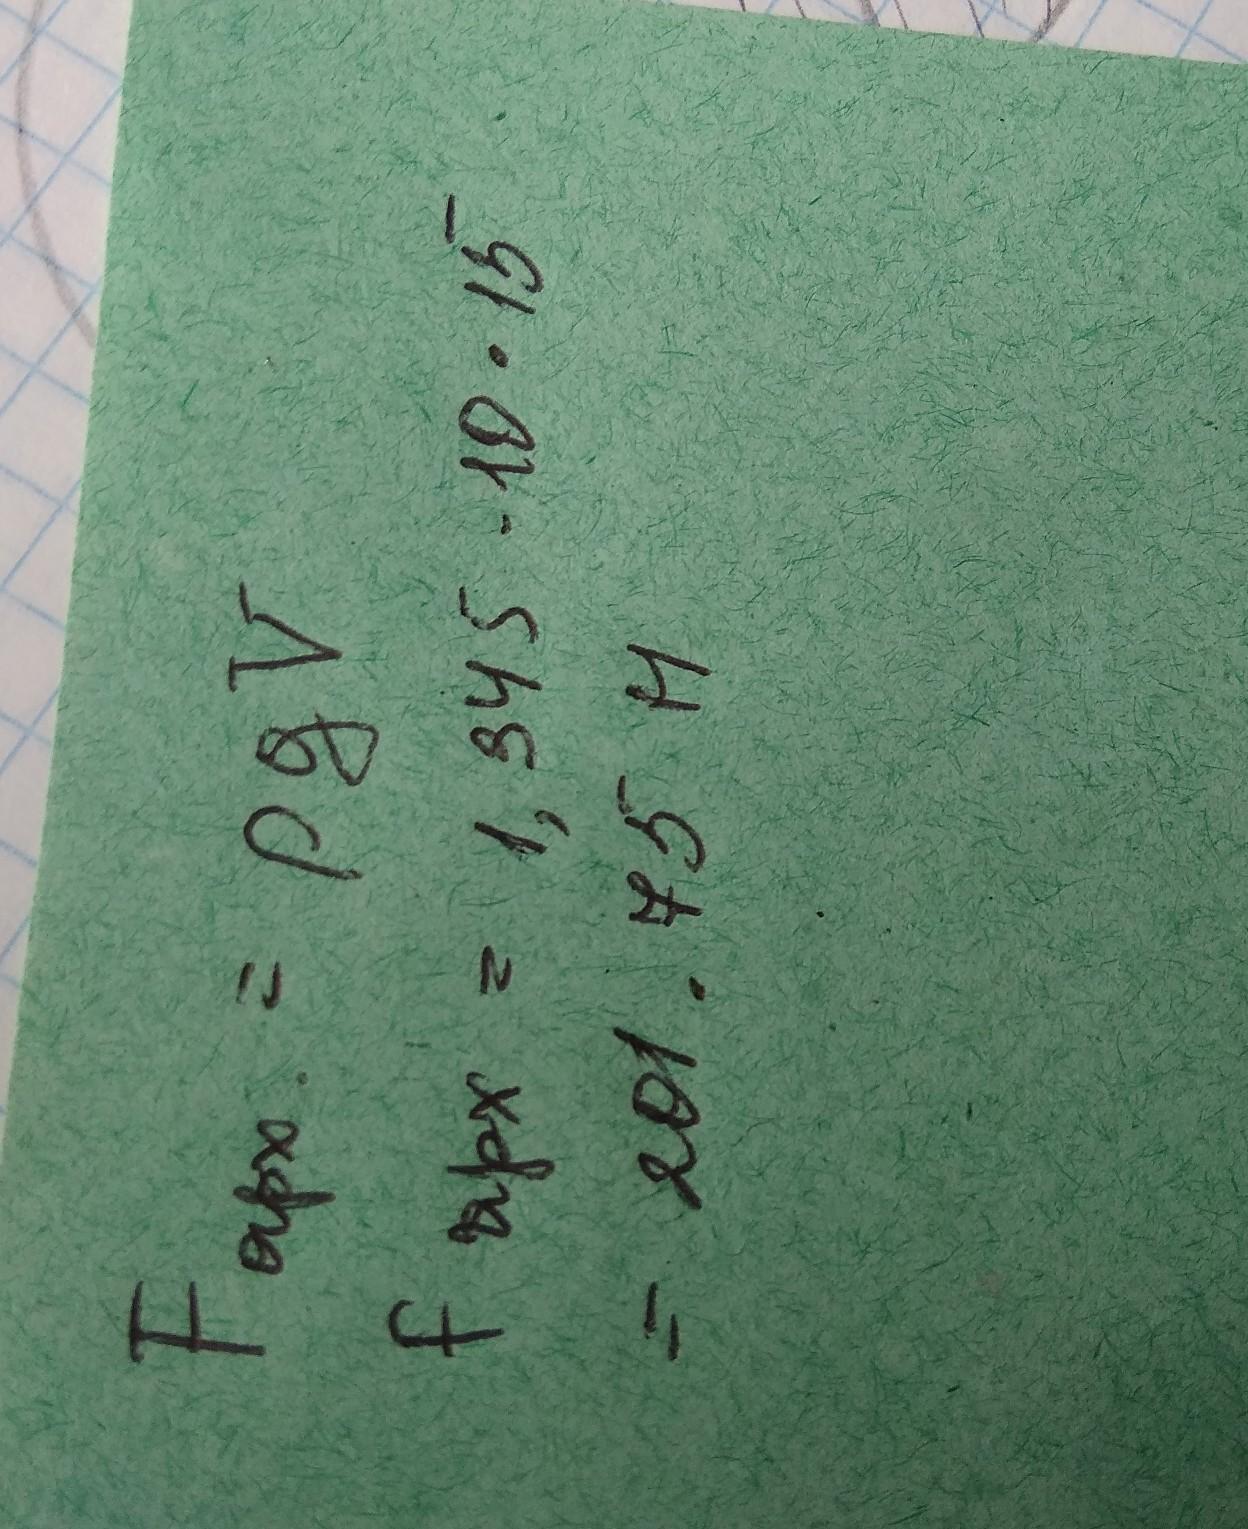 Fарх. = ρgV
Fарх = 1,345 · 10 · 15
= 201.75 Н